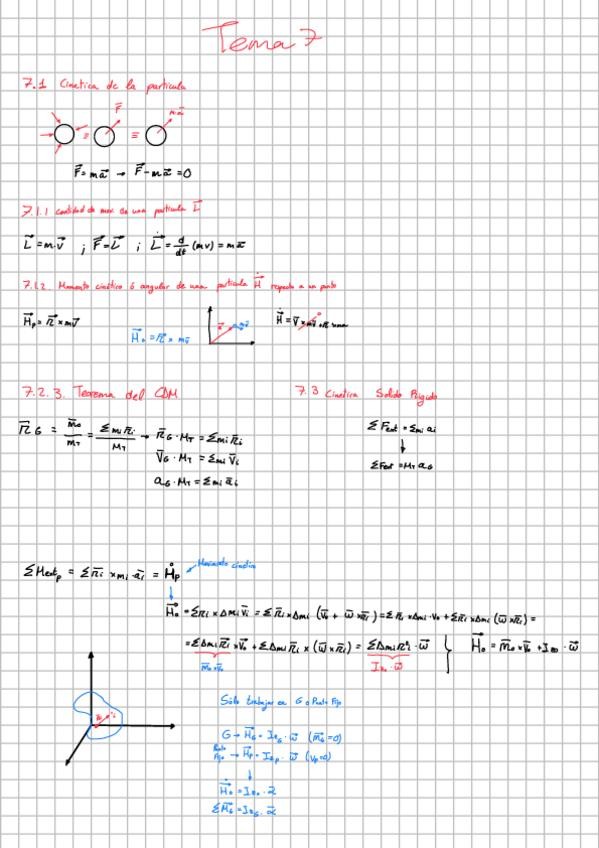 Tema 7
7.1 Cinetica de la particula
F⃗
mā
≡ ≡
F⃗ = ma⃗ → F⃗ - ma⃗ = 0
7.1.1 cantidad de mov. de una particula L⃗
L⃗ = m·v⃗ ; F⃗ = L⃗̇ ; L⃗̇ = d/dt (mv) = mā
7.1.2. Momento cinético ó angular de una particula H⃗ respecto a un punto
H⃗p = r⃗ × mv⃗
H⃗o = r⃗ × mv̄
7.2.3. Teorema del CDM
7.3 Cinetica Solido Rigido
r̄G = m̄o/mT = Σmi r̄i/MT → r̄G · MT = Σmi r̄i
v̄G · MT = Σmi v̄i
aG · MT = Σmi āi
ΣFext = Σmi ai
↓
ΣFext = MT aG
ΣMextp = Σr̄i × mi · āi = Ḣp
Momento cinético
H⃗o = Σri × Δmi v̄i = Σr̄i × Δmi (v̄o + ω̄ × r̄i) = Σr̄i × Δmi · vo + Σr̄i × Δmi (ω̄ × r̄i) =
= ΣΔmi r̄i × v̄o + ΣΔmi r̄i × (ω̄ × r̄i) = ΣΔmi r²i · ω̄
H⃗o = m̄o × v̄o + Iēo · ω̄
m̄o × v̄o
Iēo · ω̄
Sólo trabajar en G o Punto Fijo
G → H⃗G = IēG · ω̄ (m̄G = 0)
Punto Fijo → H⃗p = Iēp · ω̄ (vp = 0)
↓
H⃗̇o = Iēo · ᾱ
ΣM⃗G = IēG · ᾱ